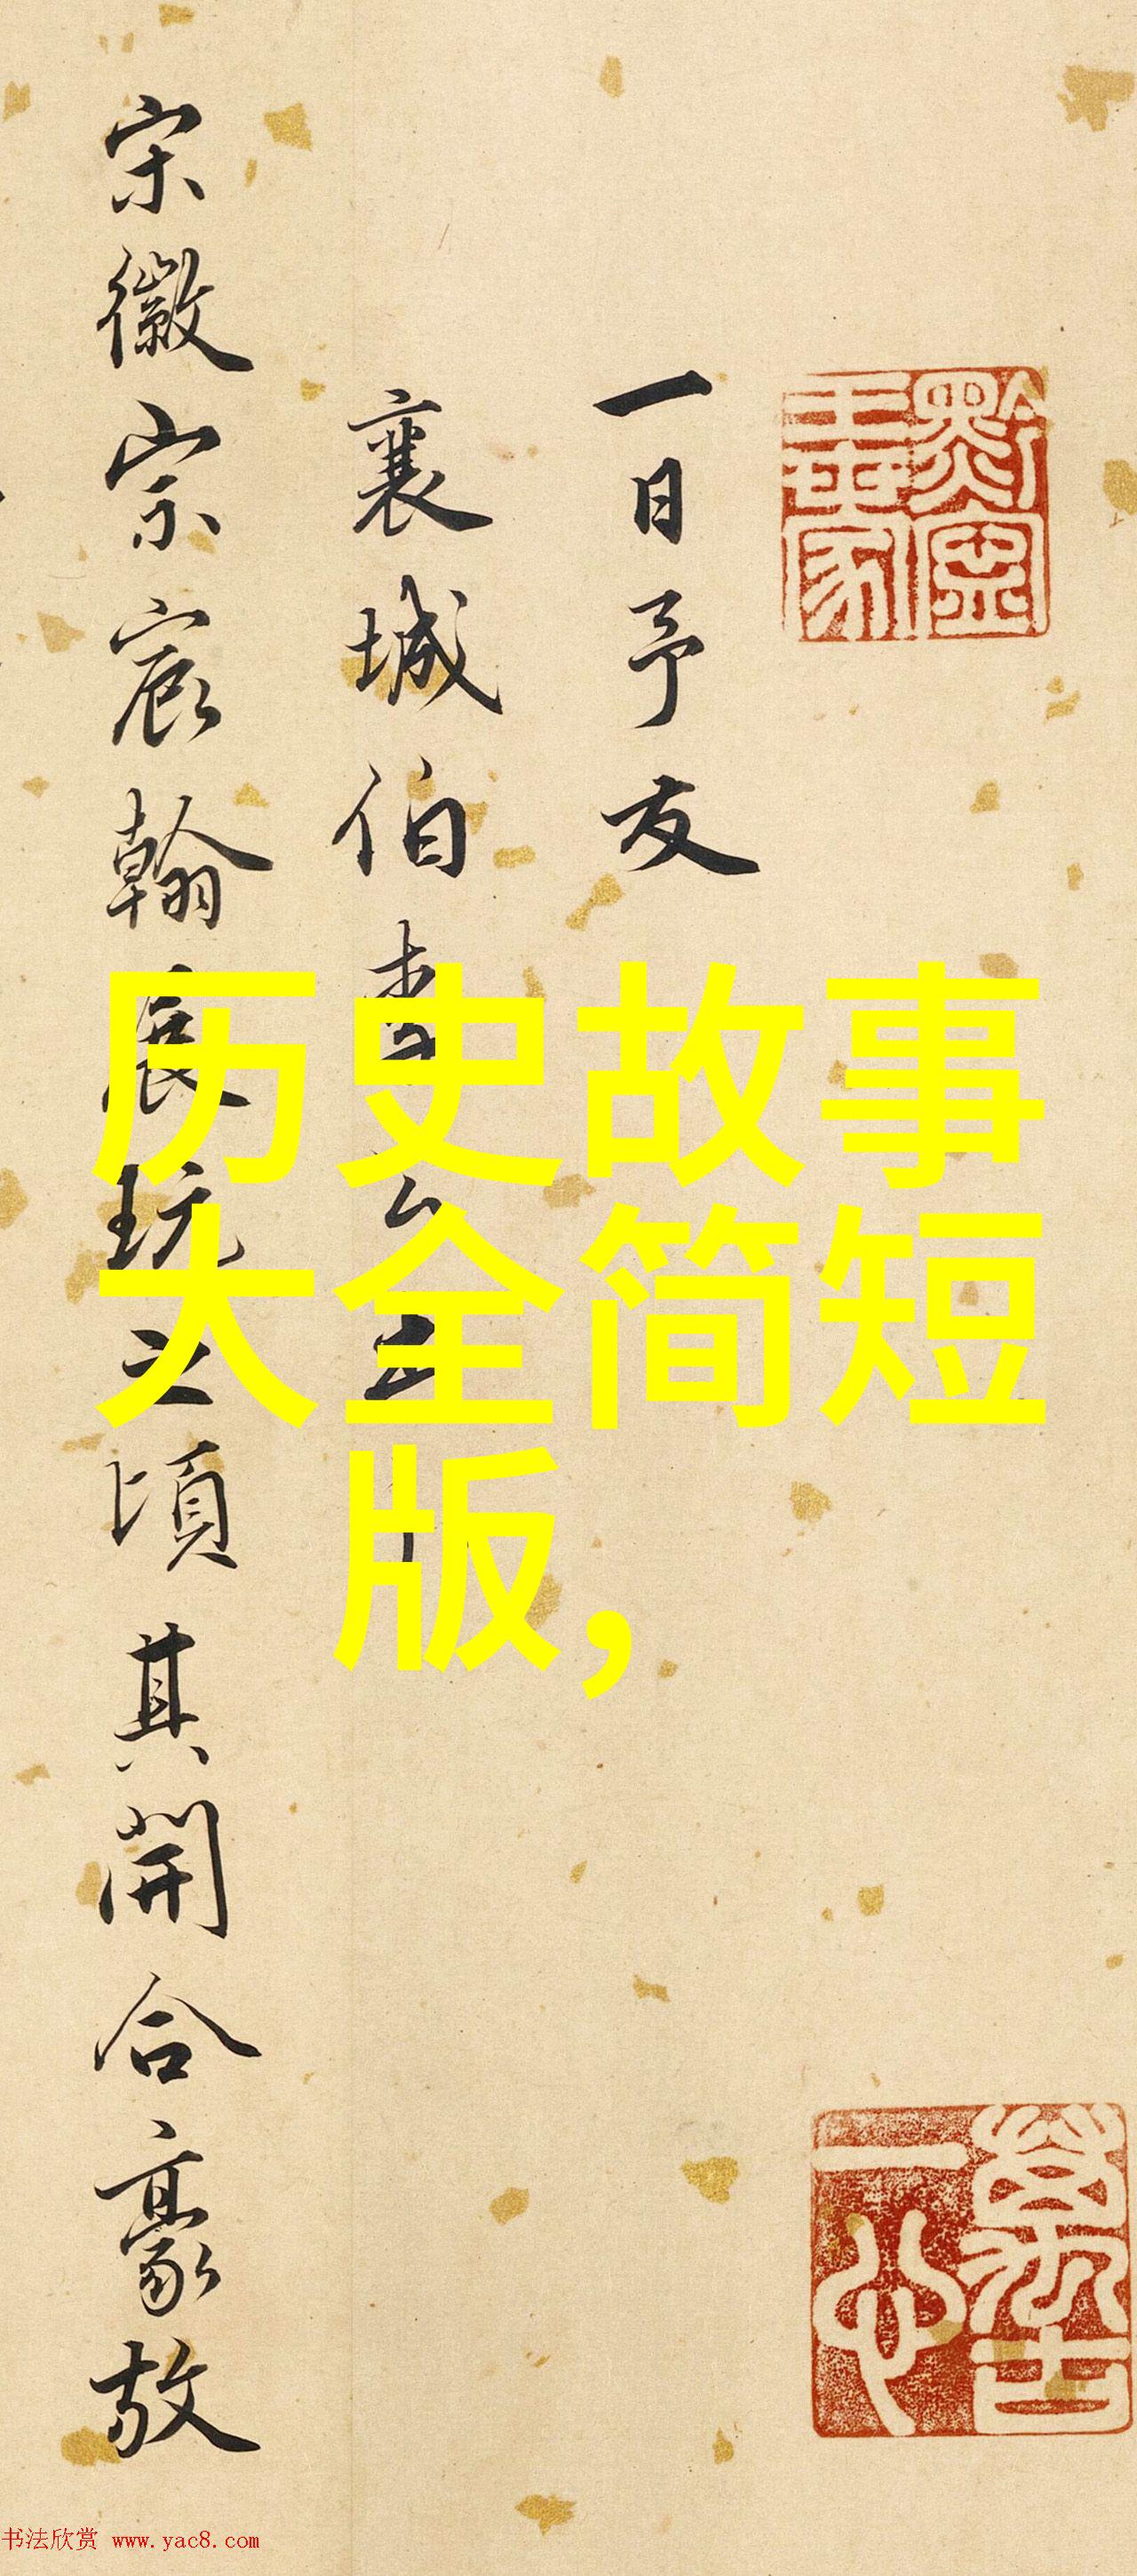 一日予友
襄城伯李公
宋徽宗宸翰展玩之頃其開合豪放
历史故事
大全简短
版，
书法欣赏 www.yac8.com